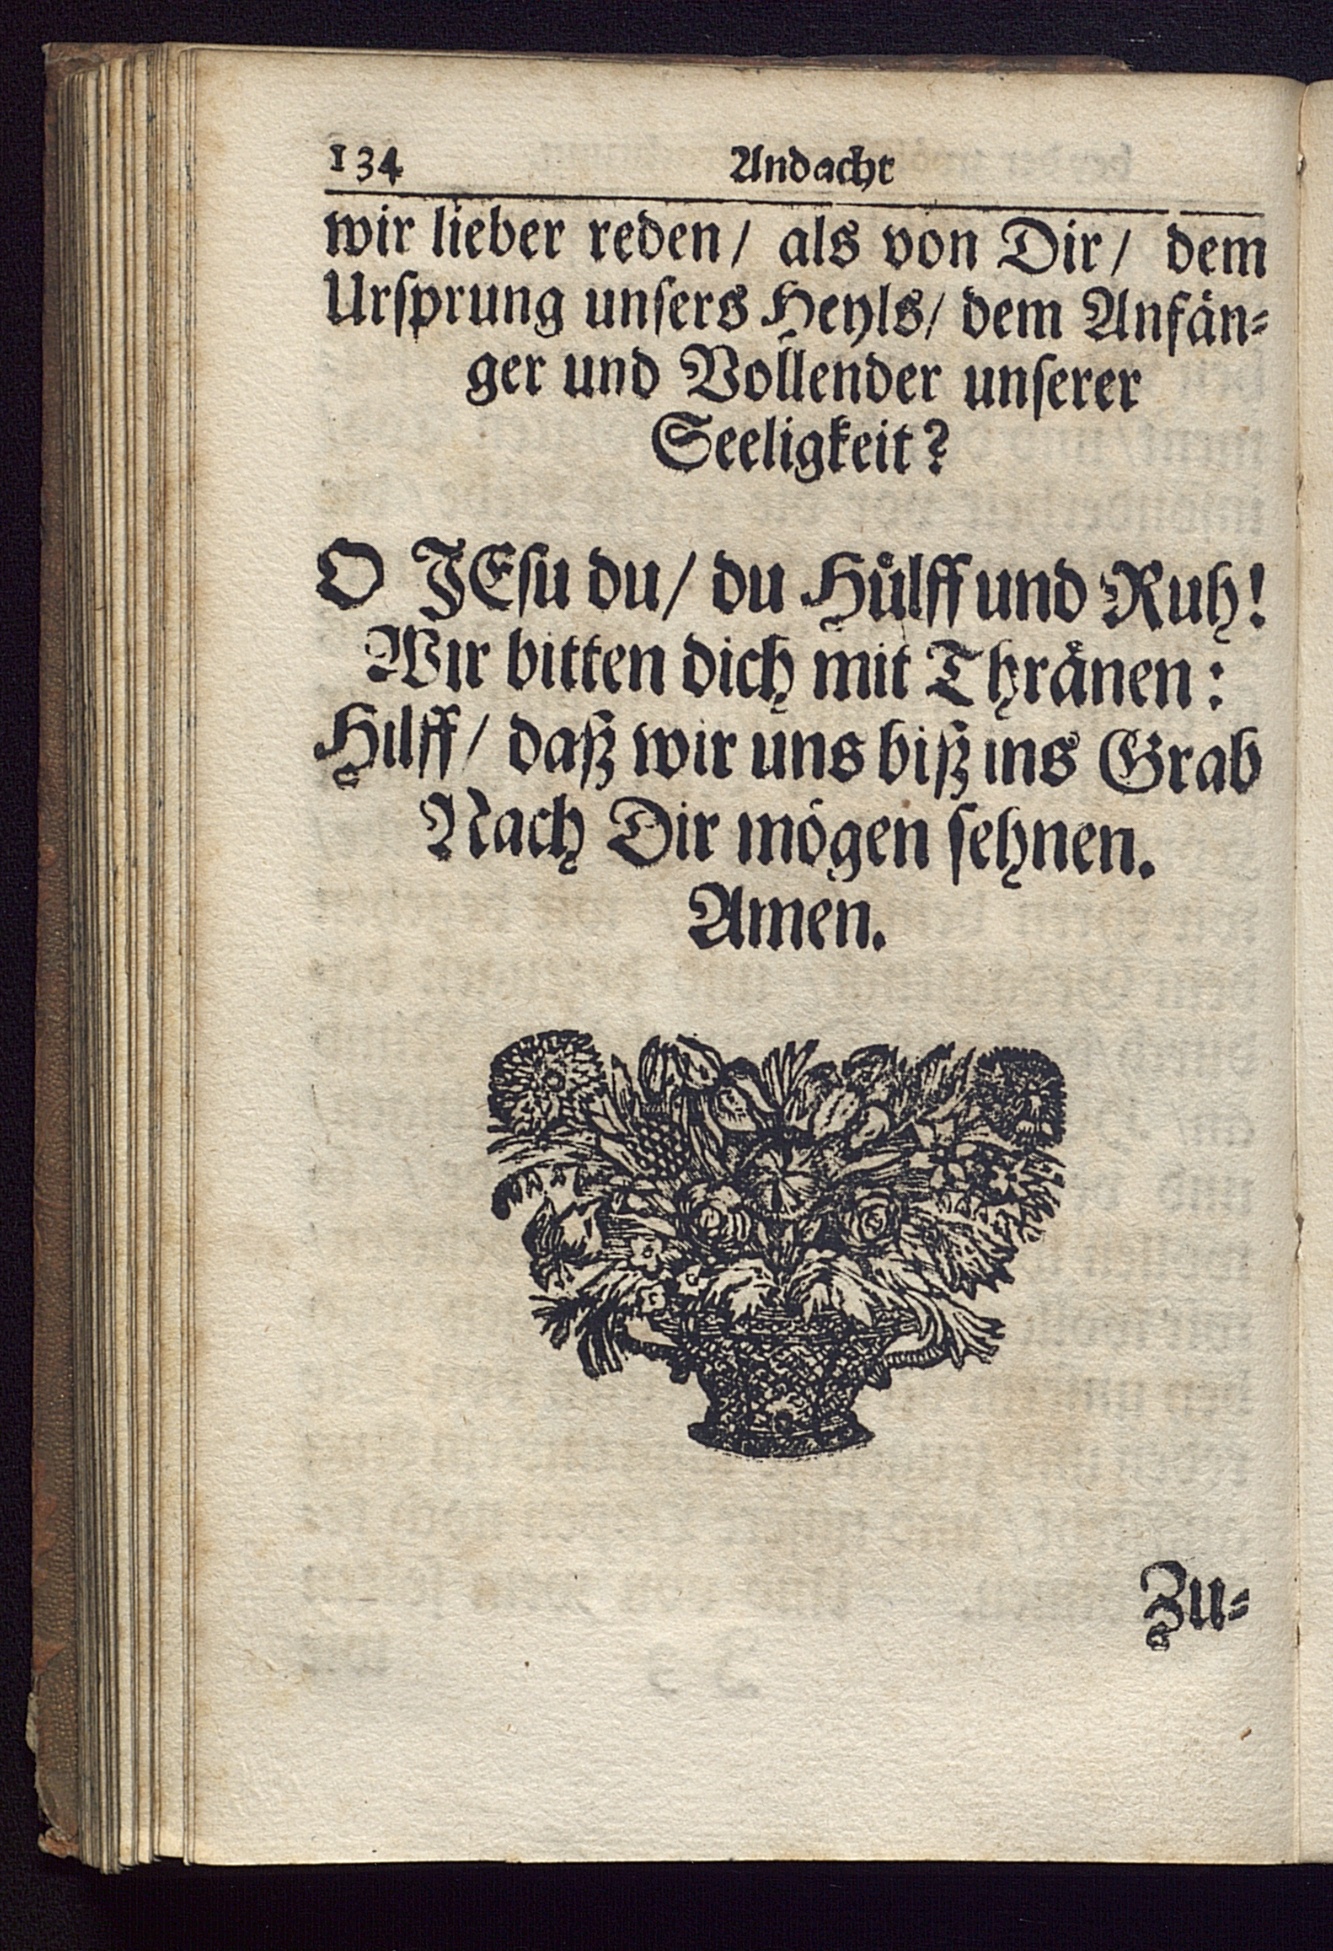 134 Andacht
wir lieber reden/ als von Dir/ dem
Urſprung unſers Heyls/ dem Anfän⸗
ger und Vollender unſerer
Seeligkeit?
O JEſu du/ du Huͤlff und Ruh!
Wir bitten dich mit Thraͤnen:
Hilff/ daß wir uns biß ins Grab
Nach Dir moͤgen ſehnen.
Amen.
Zu⸗